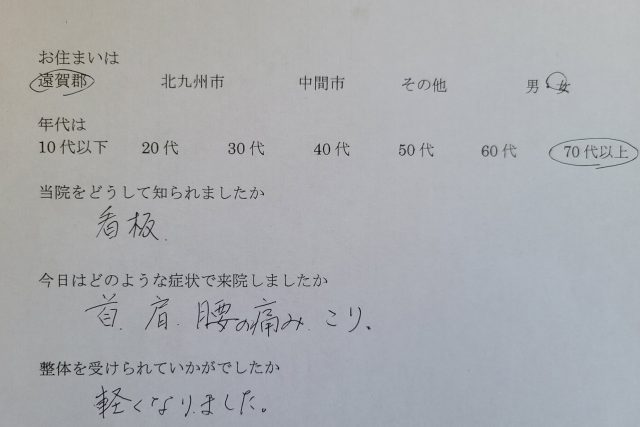 お住まいは
遠賀郡 北九州市 中間市 その他 男・女
年代は
10代以下 20代 30代 40代 50代 60代 70代以上
当院をどうして知られましたか
看板.
今日はどのような症状で来院しましたか
首、肩、腰の痛み、こり。
整体を受けられていかがでしたか
軽くなりました。